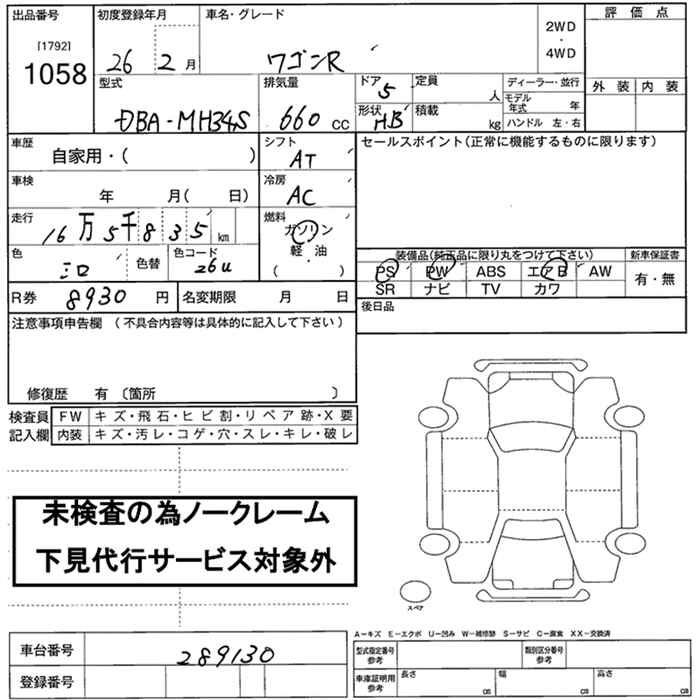 出品番号 初度登録年月 車名・グレード 評価点
[1792] 26 2 月 ワゴンR 2WD・4WD
1058 型式 排気量 ドア 5 定員 人 ディーラー・並行 外装 内装
DBA-MH34S 660 CC 形状 HB 積載 kg モデル年式 年
ハンドル 左・右
車歴 シフト セールスポイント(正常に機能するものに限ります)
自家用・( ) AT
車検 冷房
年 月( 日) AC
走行 燃料
16万5千835 km ガソリン・軽油
( )
色 色替 色コード 装備品(純正品に限り丸をつけて下さい) 新車保証書
シロ 26U PS PW ABS エアB AW 有・無
SR ナビ TV カワ
R券 8930 円 名変期限 月 日 後日品
注意事項申告欄 (不具合内容等は具体的に記入して下さい)
修復歴 有 〔箇所 〕
検査員 FW キズ・飛石・ヒビ割・リペア跡・X要
記入欄 内装 キズ・汚レ・コゲ・穴・スレ・キレ・破レ
未検査の為ノークレーム
下見代行サービス対象外
スペア
A-キズ E-エクボ U-凹み W-補修跡 S-サビ C-腐食 XX-交換済
車台番号 289130 型式指定番号 参考 類別区分番号 参考
登録番号 車庫証明用 参考 長さ cm 幅 cm 高さ cm